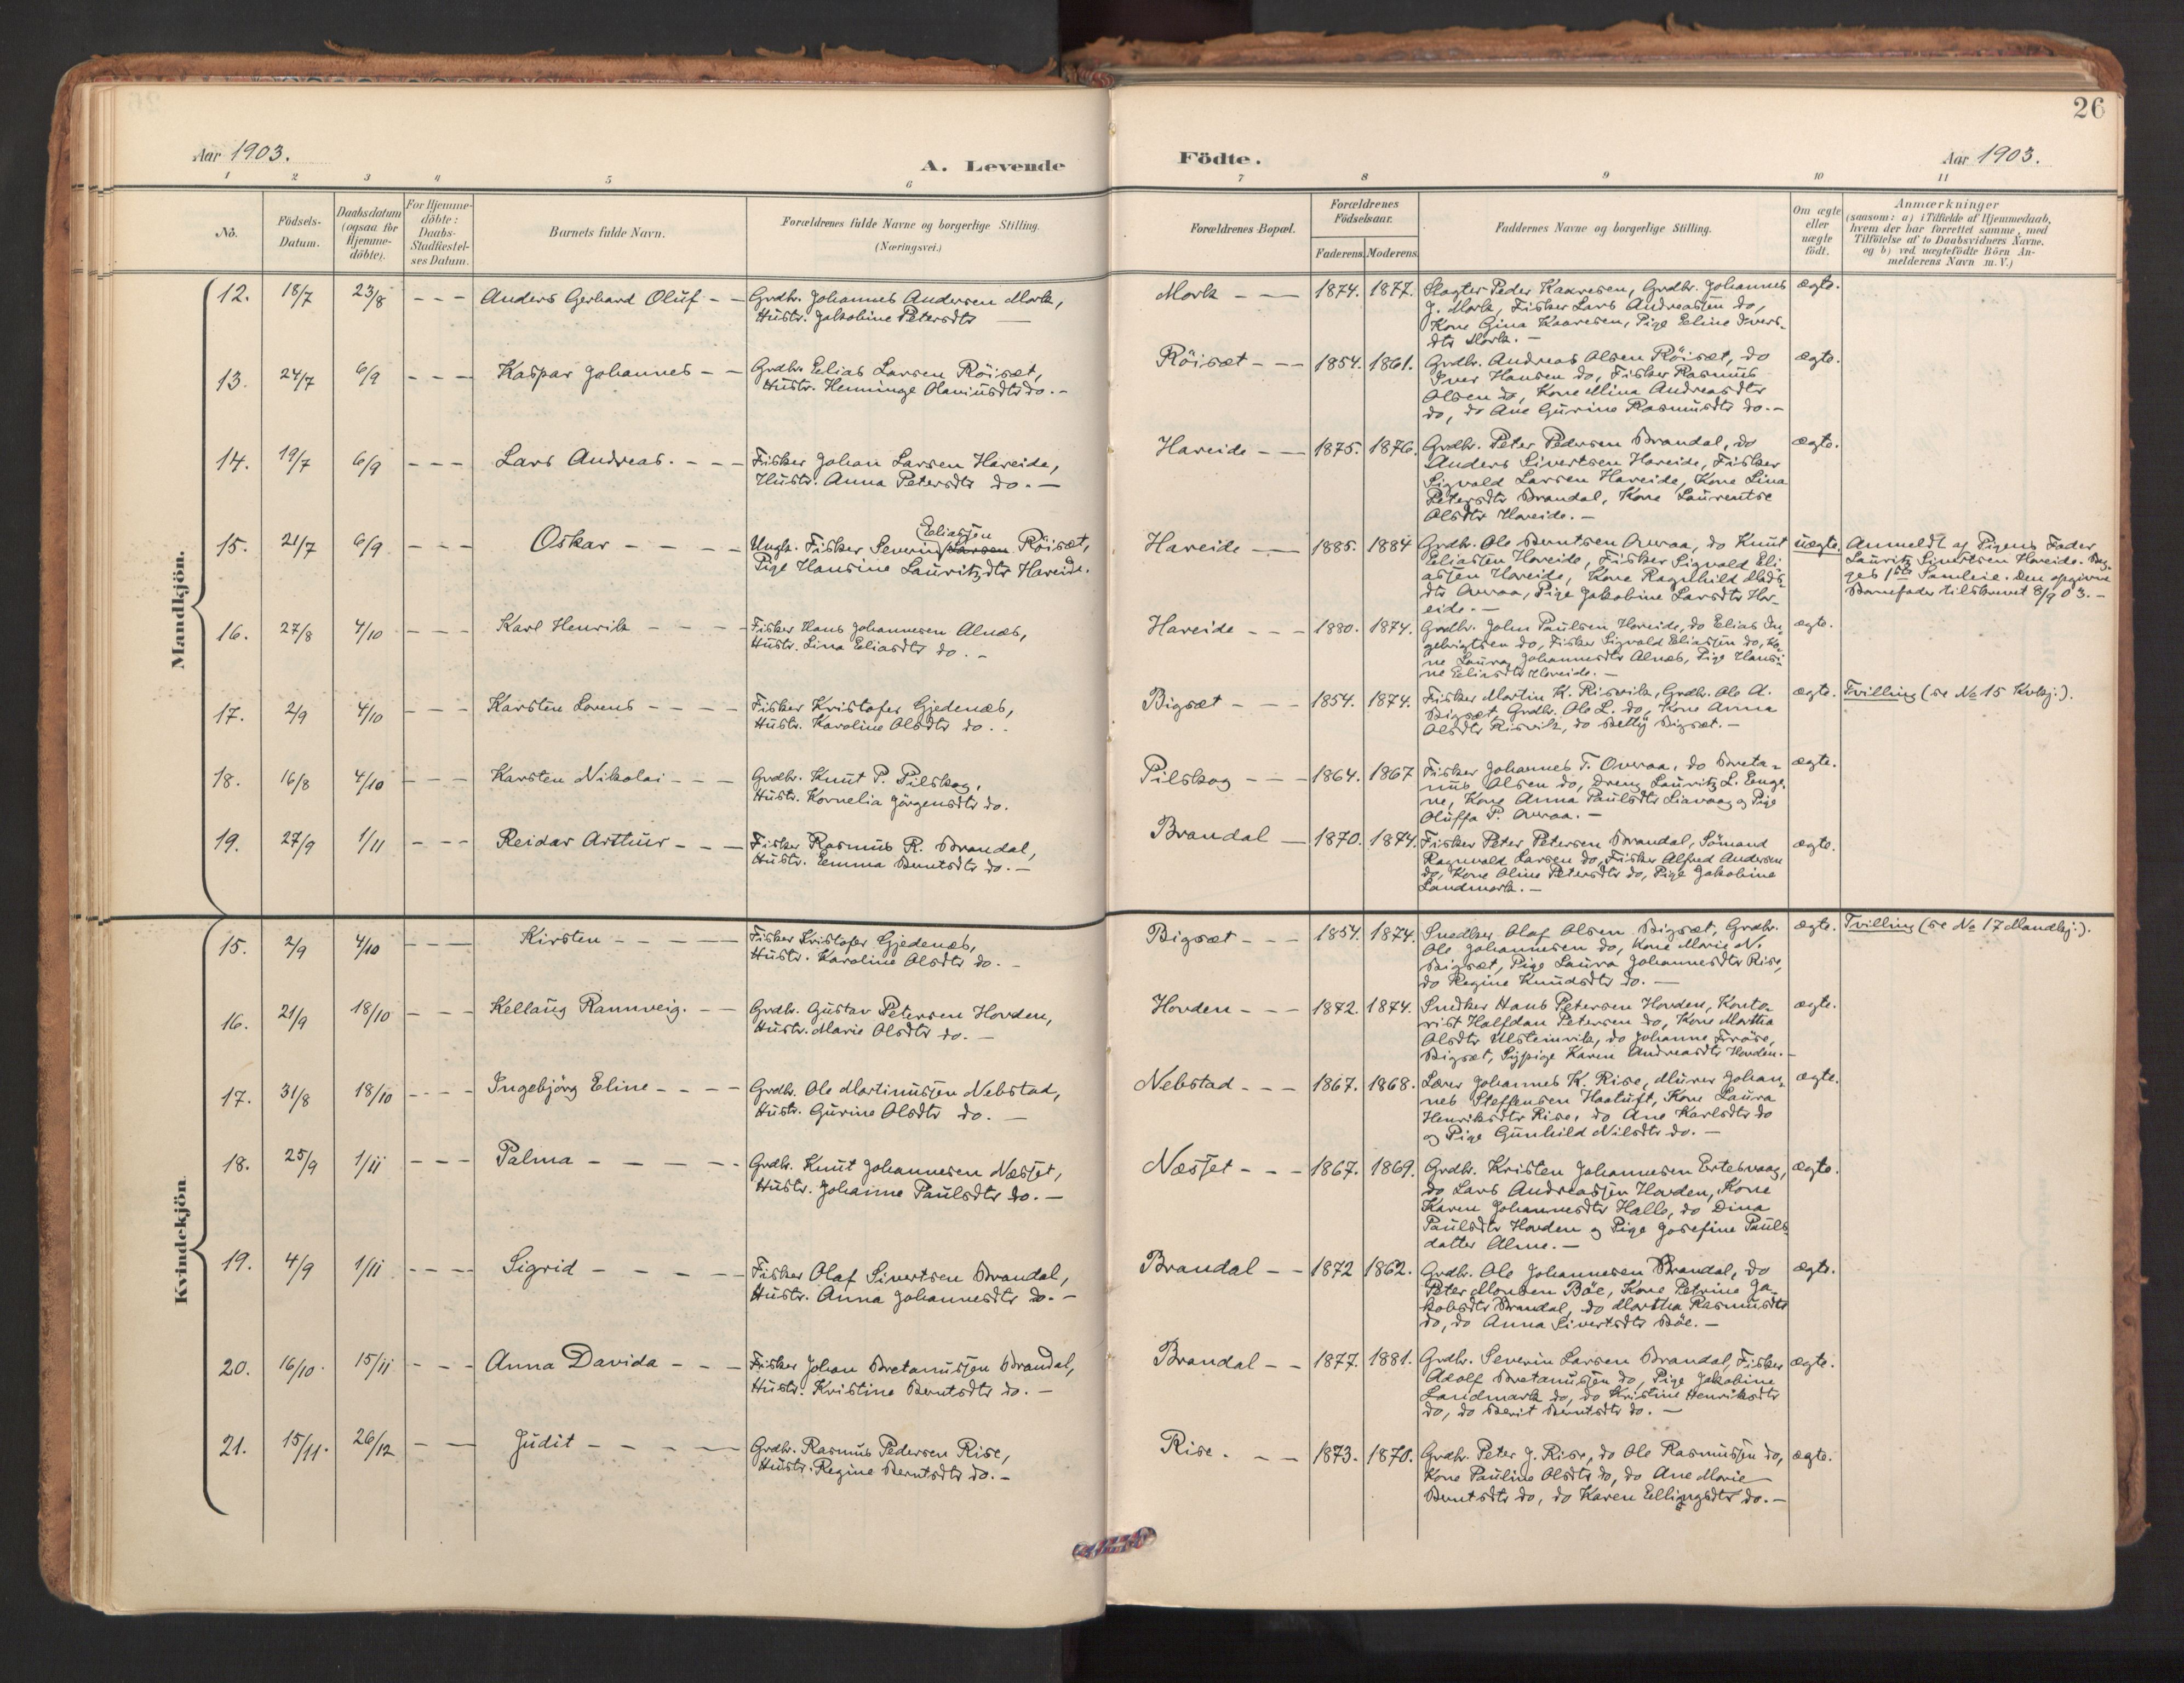 26
Aar 1903.
A. Levende
Födte.
Aar 1903.
1 2 3 4 5 6 7 8 9 10 11
No.
Födsels-
Datum.
Daabsdatum
(ogsaa for
Hjemme-
döbte).
For Hjemme-
döbte:
Daabs-
Stadfæstel-
ses Datum.
Barnets fulde Navn.
Forældrenes fulde Navne og borgerlige Stilling.
(Næringsvei.)
Forældrenes Bopæl.
Forældrenes
Födselsaar.
Faderens. Moderens.
Faddernes Navne og borgerlige Stilling.
Om ægte
eller
uægte
födt.
Anmærkninger
(saasom: a) i Tilfælde af Hjemmedaab,
hvem der har forrettet samme, med
Tilföielse af to Daabsvidners Navne.
og b) ved uægtefödte Börn An-
melderens Navn m. V.)
Mandkjön.
12. 18/7 23/8 - - - Anders Gerhard Oluf - -
Grdbr. Johannes Andersen Mork,
Hustr. Jakobine Petersdtr —
Mork - — 1874. 1877.
Slagter Peder Kaaresen, Grdbr. Johannes
J. Mork, Fisker Lars Andreassen do,
Kone Gina Kaaresen, Pige Eline Ivers-
dtr Mork. —
ægte.
13. 24/7 6/9 - - - Kaspar Johannes - -
Grdbr. Elias Larsen Röisæt,
Hustr. Henninge Olaviusdtr do. -
Röisæt - - - 1854. 1861.
Grdbr. Andreas Olsen Röisæt, do
Iver Hansen do, Fisker Rasmus
Olsen do, Kone Mina Andreasdtr
do, do Ane Gurine Rasmusdtr do. -
ægte.
14. 19/7 6/9 - - - Lars Andreas. - - -
Fisker Johan Larsen Hareide,
Hustr. Anna Petersdtr do. —
Hareide - — 1875. 1876.
Grdbr. Peter Pedersen Brandal, do
Anders Sivertsen Hareide, Fisker
Sigvald Larsen Hareide, Kone Lina
Petersdtr Brandal, Kone Laurentse
Olsdtr Hareide. —
ægte.
15. 21/7 6/9 - - - Oskar - - - -
Eliassen
Ungk. Fisker Severin Larsen Röisæt,
Pige Hansine Lauritzdtr Hareide.
Hareide - — 1885. 1884
Grdbr. Ole Berntsen Overaa, do Knut
Eliassen Hareide, Fisker Sigvald Eli-
assen Hareide, Kone Ragnhild Mads-
dtr Overaa, Pige Jakobine Larsdtr Har-
eide. —
uægte.
Anmeldt af Pigens Fader
Lauritz Sivertsen Hareide. Beg-
ges 1ste Samleie. Den opgivne
Barnefader tilskrevet 8/9 03. -
16. 27/8 4/10 - - - Karl Henrik - - - -
Fisker Hans Johannesen Alnæs,
Hustr. Lina Eliasdtr do. -
Hareide - - - 1880. 1874.
Grdbr. John Paulsen Hareide, do Elias In-
gebrigtsen do, Fisker Sigvald Eliassen do, Ko-
ne Laura Johannesdtr Alnæs, Pige Hansi-
ne Eliasdtr Hareide. —
ægte.
17. 2/9 4/10 - - - Karsten Lorens - - - -
Fisker Kristofer Gjedenæs,
Hustr. Karoline Olsdtr do. .
Bigsæt - - - 1854. 1874.
Fisker Martin K. Risvik, Grdbr. Ole A.
Bigsæt, Grdbr. Ole L. do, Kone Anna
Olsdtr Risvik, do Betty Bigsæt. —
ægte.
Tvilling (se No 15 Kvkj.).
18. 16/8 4/10 - - - Karsten Nikolai - - -
Grdbr. Knut P. Pilskog,
Hustr. Kornelia Jörgensdtr do.
Pilskog - - - 1864. 1867
Fisker Johannes T. Overaa, do Breta-
nus Olsen do, Dreng Lauritz L. Enge-
ne, Kone Anna Paulsdtr Liavaag og Pige
Oluffa P. Overaa. —
ægte.
19. 27/9 1/11 - - - Reidar Arthur - - -
Fisker Rasmus R. Brandal,
Hustr. Emma Berntsdtr do. —
Brandal — 1870. 1874.
Fisker Peter Petersen Brandal, Sömand
Ragnvald Larsen do, Fisker Alfred Andersen
do, Kone Oline Petersdtr do, Pige Jakobine
Landmark. —
ægte.
Kvindekjön
15. 2/9 4/10 - - - Kirsten - - - — -
Fisker Kristofer Gjedenæs,
Hustr. Karoline Olsdtr do. -
Bigsæt - - - 1854. 1874.
Snedker Olaf Olsen Bigsæt, Grdbr.
Ole Johannesen do, Kone Marie N.
Bigsæt, Pige Laura Johannesdtr Rise,
do Regine Knudsdtr do. —
ægte.
Tvilling (se No 17 Mandkj.).
16. 21/9 18/10 - - - Kellaug Rannveig. - -
Grdbr. Gustav Petersen Hovden,
Hustr. Marie Olsdtr do. -
Hovden - - - 1872. 1874.
Snedker Hans Petersen Hovden, Konto-
rist Halfdan Petersen do, Kone Martha
Olsdtr Ulsteinvik, do Johanne Fröse,
Bigsæt, Sypige Karen Andreasdtr Hovden. -
ægte.
17. 31/8 18/10 - - - Ingebjörg Eline - - - -
Grdbr. Ole Martinussen Nebstad,
Hustr. Gurine Olsdtr do. —
Nebstad - - - 1867. 1868.
Lærer Johannes K. Rise, Murer Johan-
nes Steffensen Haatuft, Kone Laura
Henriksdtr Rise, do Ane Karlsdtr do
og Pige Gunhild Nilsdtr do. —
ægte.
18. 25/9 1/11 - - - Palma - — - - -
Grdbr. Knut Johannesen Næsset,
Hustr. Johanne Paulsdtr do. —
Næsset - - - 1867. 1869.
Grdbr. Kristen Johannesen Ertesvaag,
do Lars Andreassen Hovden, Kone
Karen Johannesdtr Hallo, do Dina
Paulsdtr Hovden og Pige Josefine Pauls-
datter Alme. —
ægte.
19. 4/9 1/11 - - - Sigrid - - - - -
Fisker Olaf Sivertsen Brandal,
Hustr. Anna Johannesdtr do. -
Brandal - - 1872 1862.
Grdbr. Ole Johannesen Brandal, do
Peter Monsen Böe, Kone Petrine Ja-
kobsdtr Brandal, do Martha Rasmusdtr
do, do Anna Sivertsdtr Böe. —
ægte.
20. 16/10. 15/11 - - - Anna Davida - - -
Fisker Johan Bretanussen Brandal,
Hustr. Kristine Berntsdtr do. —
Brandal - - 1877. 1881.
Grdbr. Severin Larsen Brandal, Fisker
Adolf Bretanussen do, Pige Jakobine
Landmark do, do Kristine Henriksdtr
do, do Berit Berntsdtr do. —
ægte.
21. 15/11. 26/12 - — Judit - - - - —
Grdbr. Rasmus Pedersen Rise,
Hustr. Regine Berntsdtr do. -
Rise. - - 1873. 1870.
Grdbr. Peter J. Rise, do Ole Rasmussen do,
Kone Pauline Olsdtr do, do Ane Marie
Berntsdtr do, do Karen Ellingsdtr do. —
ægte.